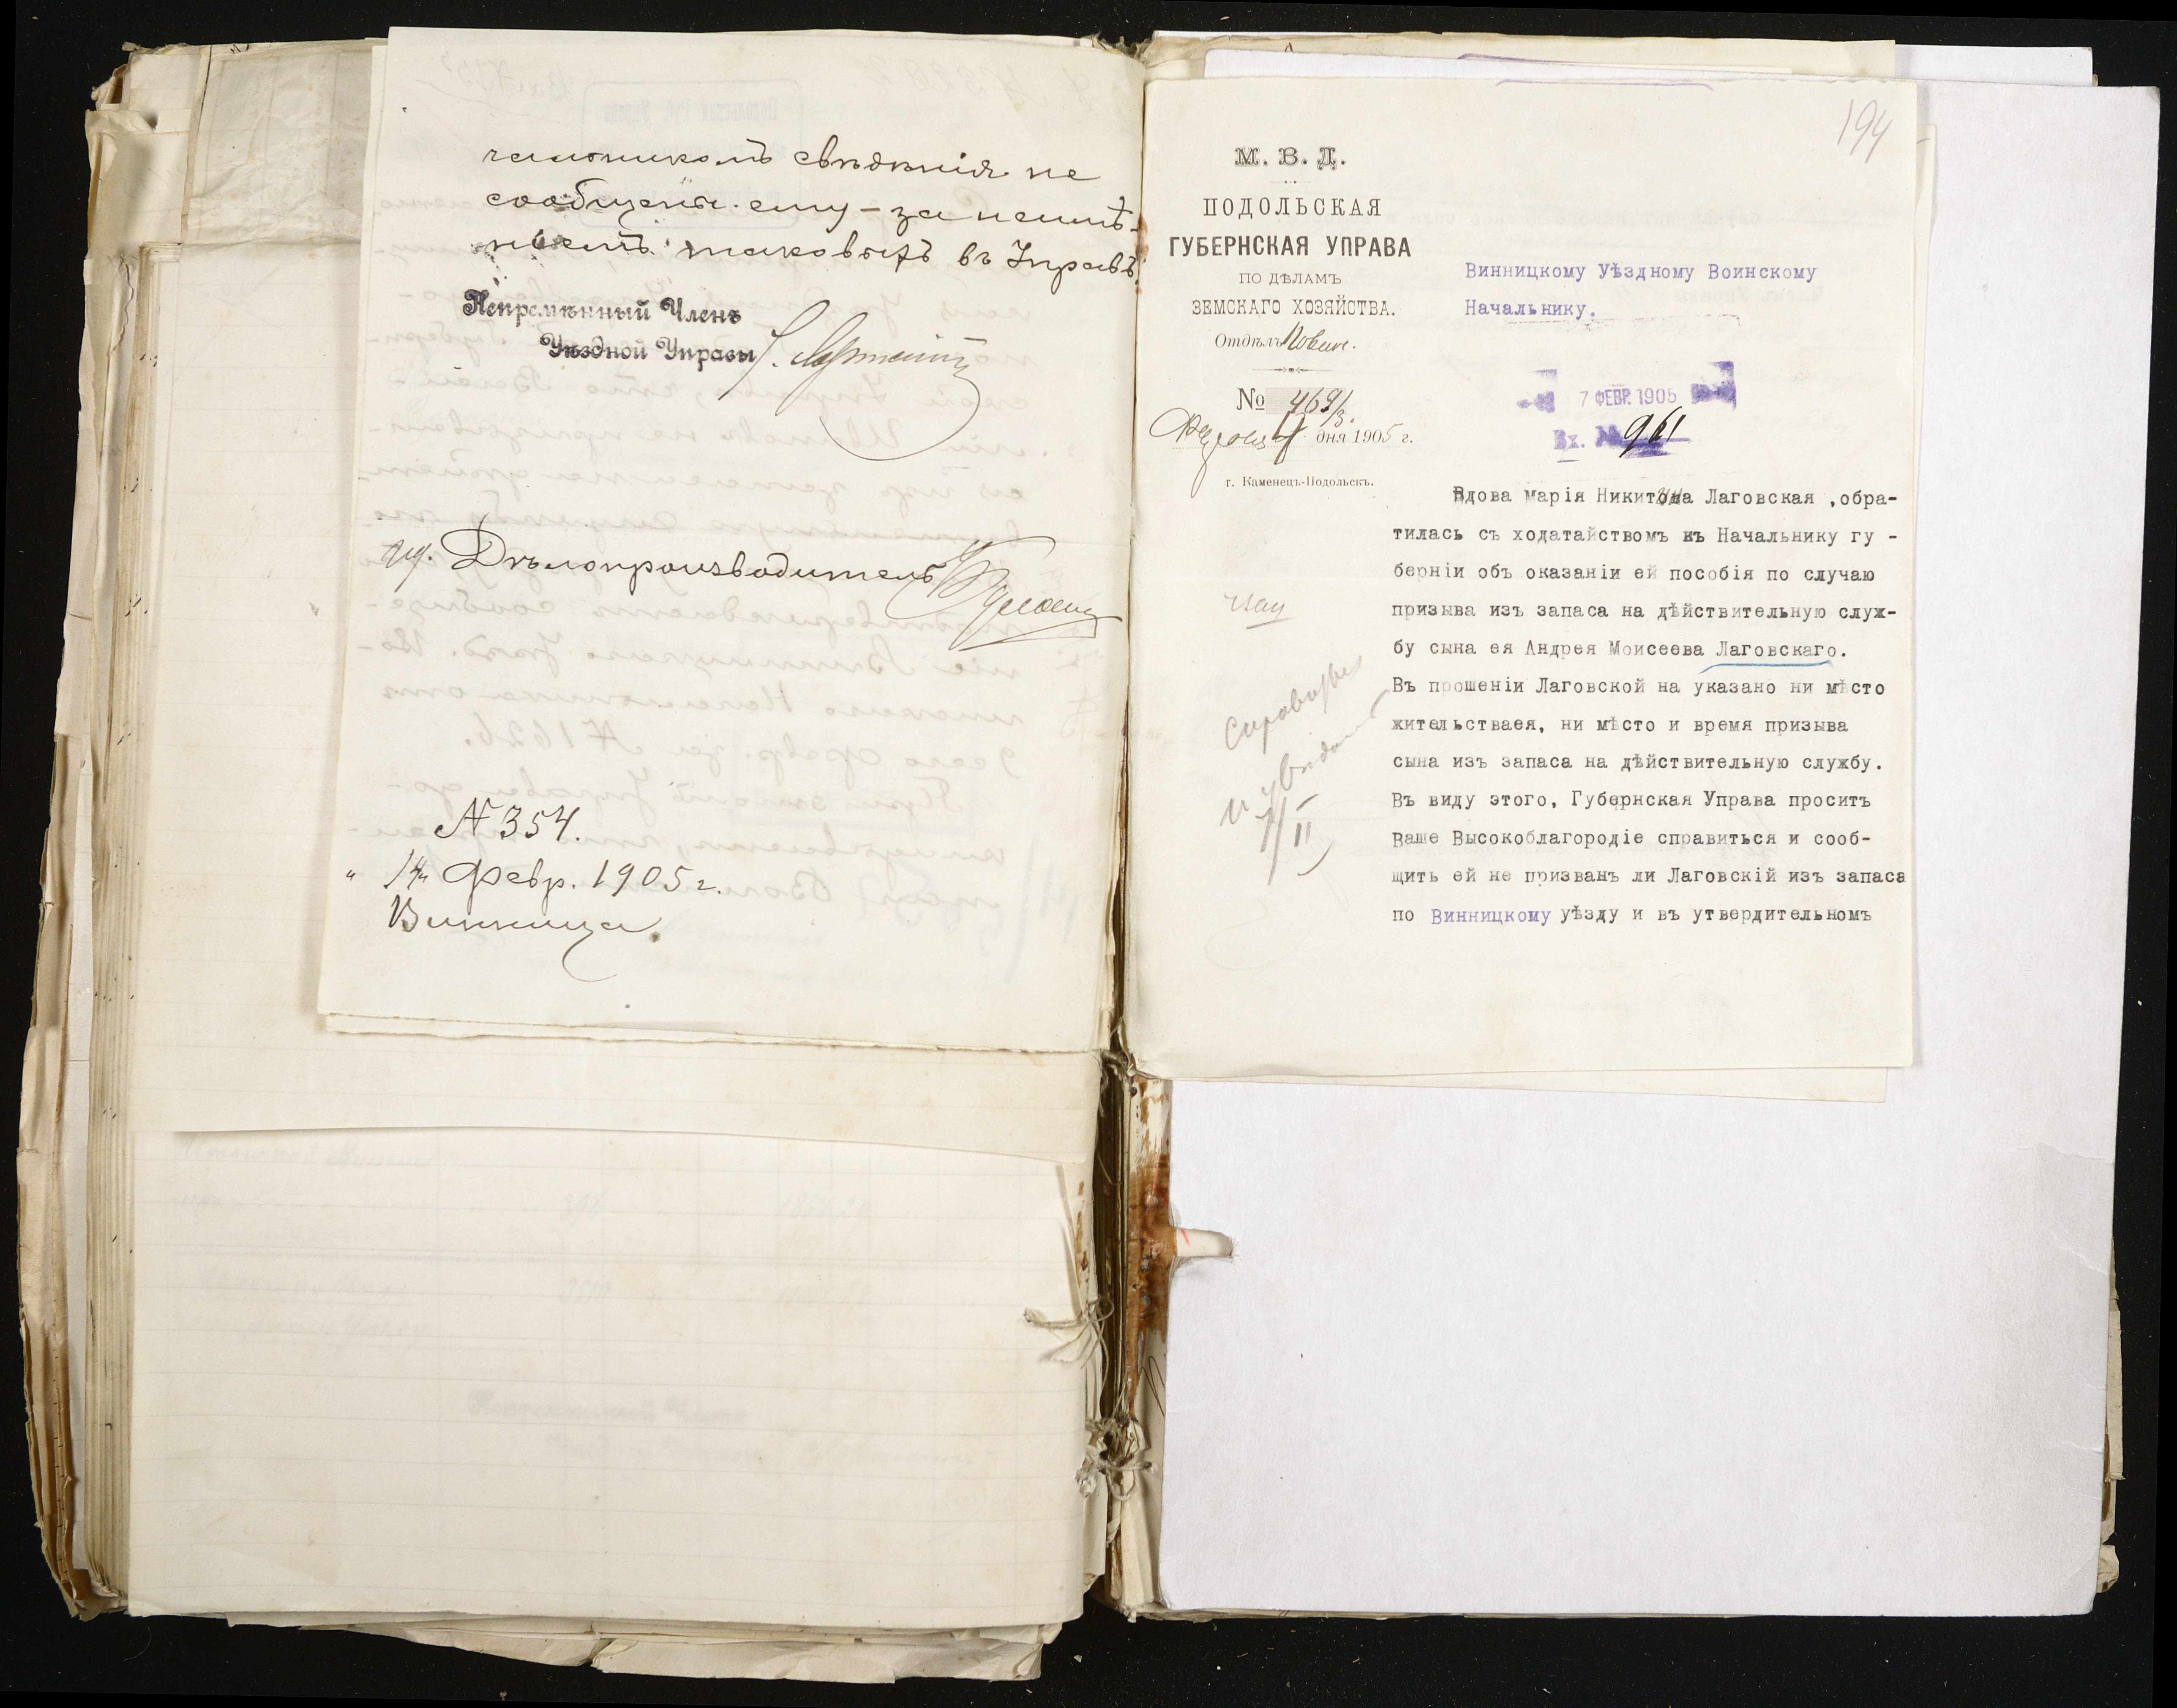 чальникомъ свѣдѣнія не
сообщены ему – за неимѣ-
ніемъ таковыхъ въ Управѣ.
Непремѣнный Членъ
Уѣздной Управы
Дѣлопроизводитель
№ 354.
" 14 " Февр. 1905 г.
Винница.
194
М. В. Д.
ПОДОЛЬСКАЯ
ГУБЕРНСКАЯ УПРАВА
ПО ДѢЛАМЪ
ЗЕМСКАГО ХОЗЯЙСТВА.
Отдѣлъ
№ 469/3.
дня 1905 г.
г. Каменецъ-Подольскъ.
Винницкому Уѣздному Воинскому
Начальнику.
7 ФЕВР. 1905
Вх. № 961
Вдова Марія Никитина Лаговская ,обра-
тилась съ ходатайствомъ къ Начальнику гу -
берніи объ оказаніи ей пособія по случаю
призыва изъ запаса на дѣйствительную служ-
бу сына ея Андрея Моисеева Лаговскаго.
Въ прошеніи Лаговской на указано ни мѣсто
жительстваея, ни мѣсто и время призыва
сына изъ запаса на дѣйствительную службу.
Въ виду этого, Губернская Управа проситъ
Ваше Высокоблагородіе справиться и сооб-
щить ей не призванъ ли Лаговскій изъ запаса
по Винницкому уѣзду и въ утвердительномъ
7/II